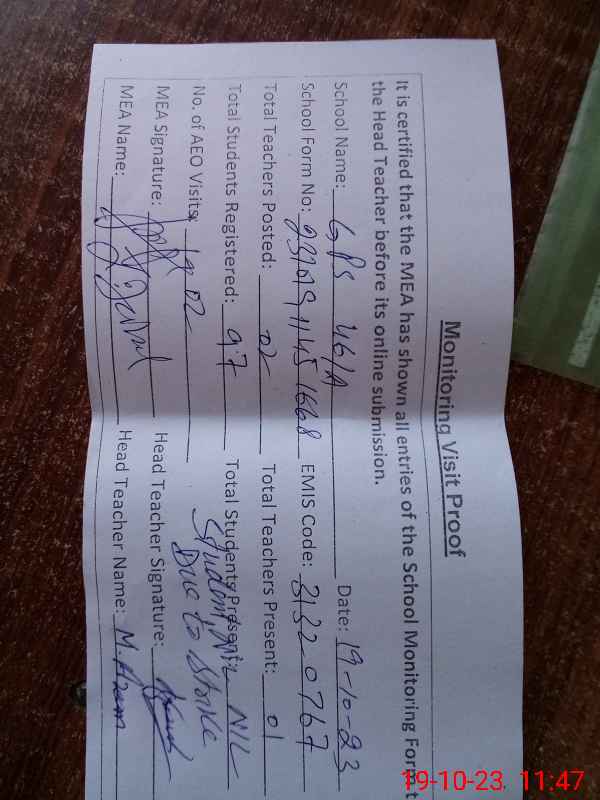 Monitoring Visit Proof
It is certified that the MEA has shown all entries of the School Monitoring Form t
the Head Teacher before its online submission.
School Name: GPS 46/A Date: 19-10-23
School Form No: EMIS Code: 31320767
Total Teachers Posted: 02 Total Teachers Present: 01
Total Students Registered: 97 Total Students Present: NIL
Student NIL
Due to Strike
No. of AEO Visits: 02
MEA Signature: Head Teacher Signature:
MEA Name: Head Teacher Name: M. Azam
19-10-23, 11:47